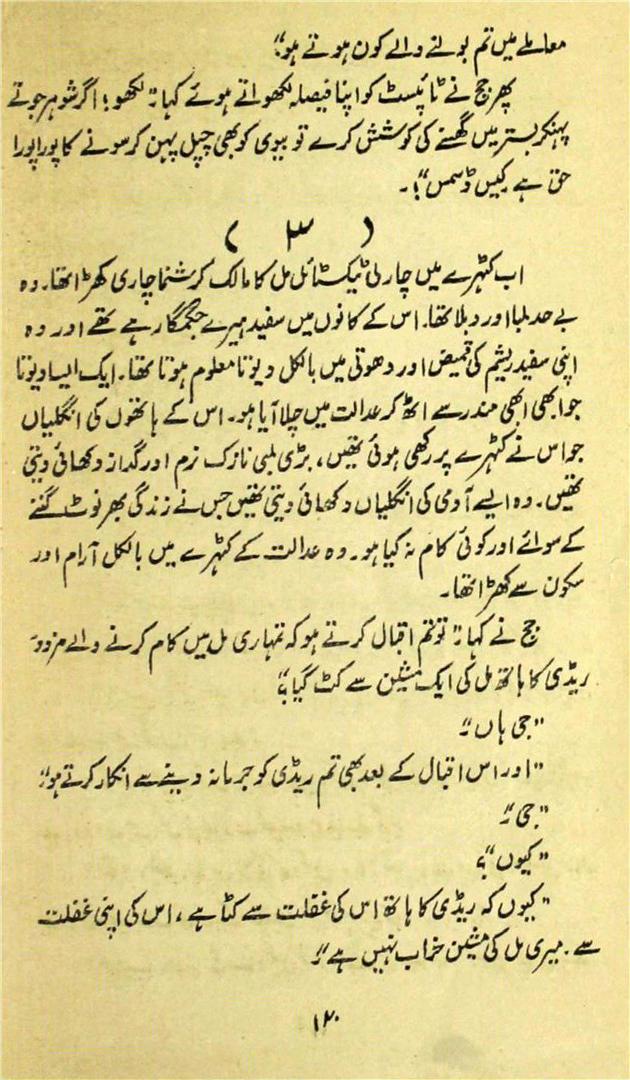 معاملے میں تم بولنے والے کون ہوتے ہو؟"
پھر جج نے ٹائپسٹ کو اپنا فیصلہ لکھواتے ہوئے کہا "لکھو؛ اگر شوہر جوتے
پہنکر بستر میں گھسنے کی کوشش کرے تو بیوی کو بھی چپل پہن کر سونے کا پورا پورا
حق ہے کیس ڈسمس"! ۔
( ۳ )
اب کٹہرے میں چارلی ٹیکسٹائل مل کا مالک کرشنماچاری کھڑا تھا۔ وہ
بے حد لمبا اور دبلا تھا۔ اس کے کانوں میں سفید ہیرے جگمگا رہے تھے اور وہ
اپنی سفید ریشم کی قمیض اور دھوتی میں بالکل دیوتا معلوم ہوتا تھا۔ ایک ایسا دیوتا
جو ابھی ابھی مندر سے اٹھ کر عدالت میں چلا آیا ہو۔ اس کے ہاتھوں کی انگلیاں
جو اس نے کٹہرے پر رکھی ہوئی تھیں، بڑی لمبی نازک نرم اور گداز دکھائی دیتی
تھیں۔ وہ ایسے آدمی کی انگلیاں دکھائی دیتی تھیں جس نے زندگی بھر نوٹ گننے
کے سوائے اور کوئی کام نہ کیا ہو۔ وہ عدالت کے کٹہرے میں بالکل آرام اور
سکون سے کھڑا تھا۔
جج نے کہا "تو تم اقبال کرتے ہو کہ تمہاری مل میں کام کرنے والے مزدور
ریڈی کا ہاتھ مل کی ایک مشین سے کٹ گیا؟"
"جی ہاں"
"اور اس اقبال کے بعد بھی تم ریڈی کو جرمانہ دینے سے انکار کرتے ہو"
"جی"
"کیوں"؟
"کیوں کہ ریڈی کا ہاتھ اس کی غفلت سے کٹا ہے، اس کی اپنی غفلت
سے۔ میری مل کی مشین خراب نہیں ہے"!
۱۲۰